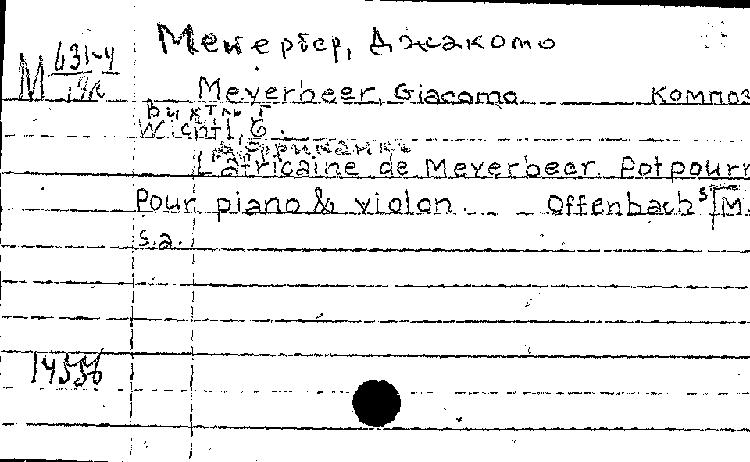 Мейербер, Джакомо
М 431-4
Meyerbeer, Giacomo композ
Вихтль, Г
Wichtl, G.
Африканка
L'africaine de Meyerbeer. Potpourr
Pour piano & violon. Offenbach s/M.
s.a.
14556